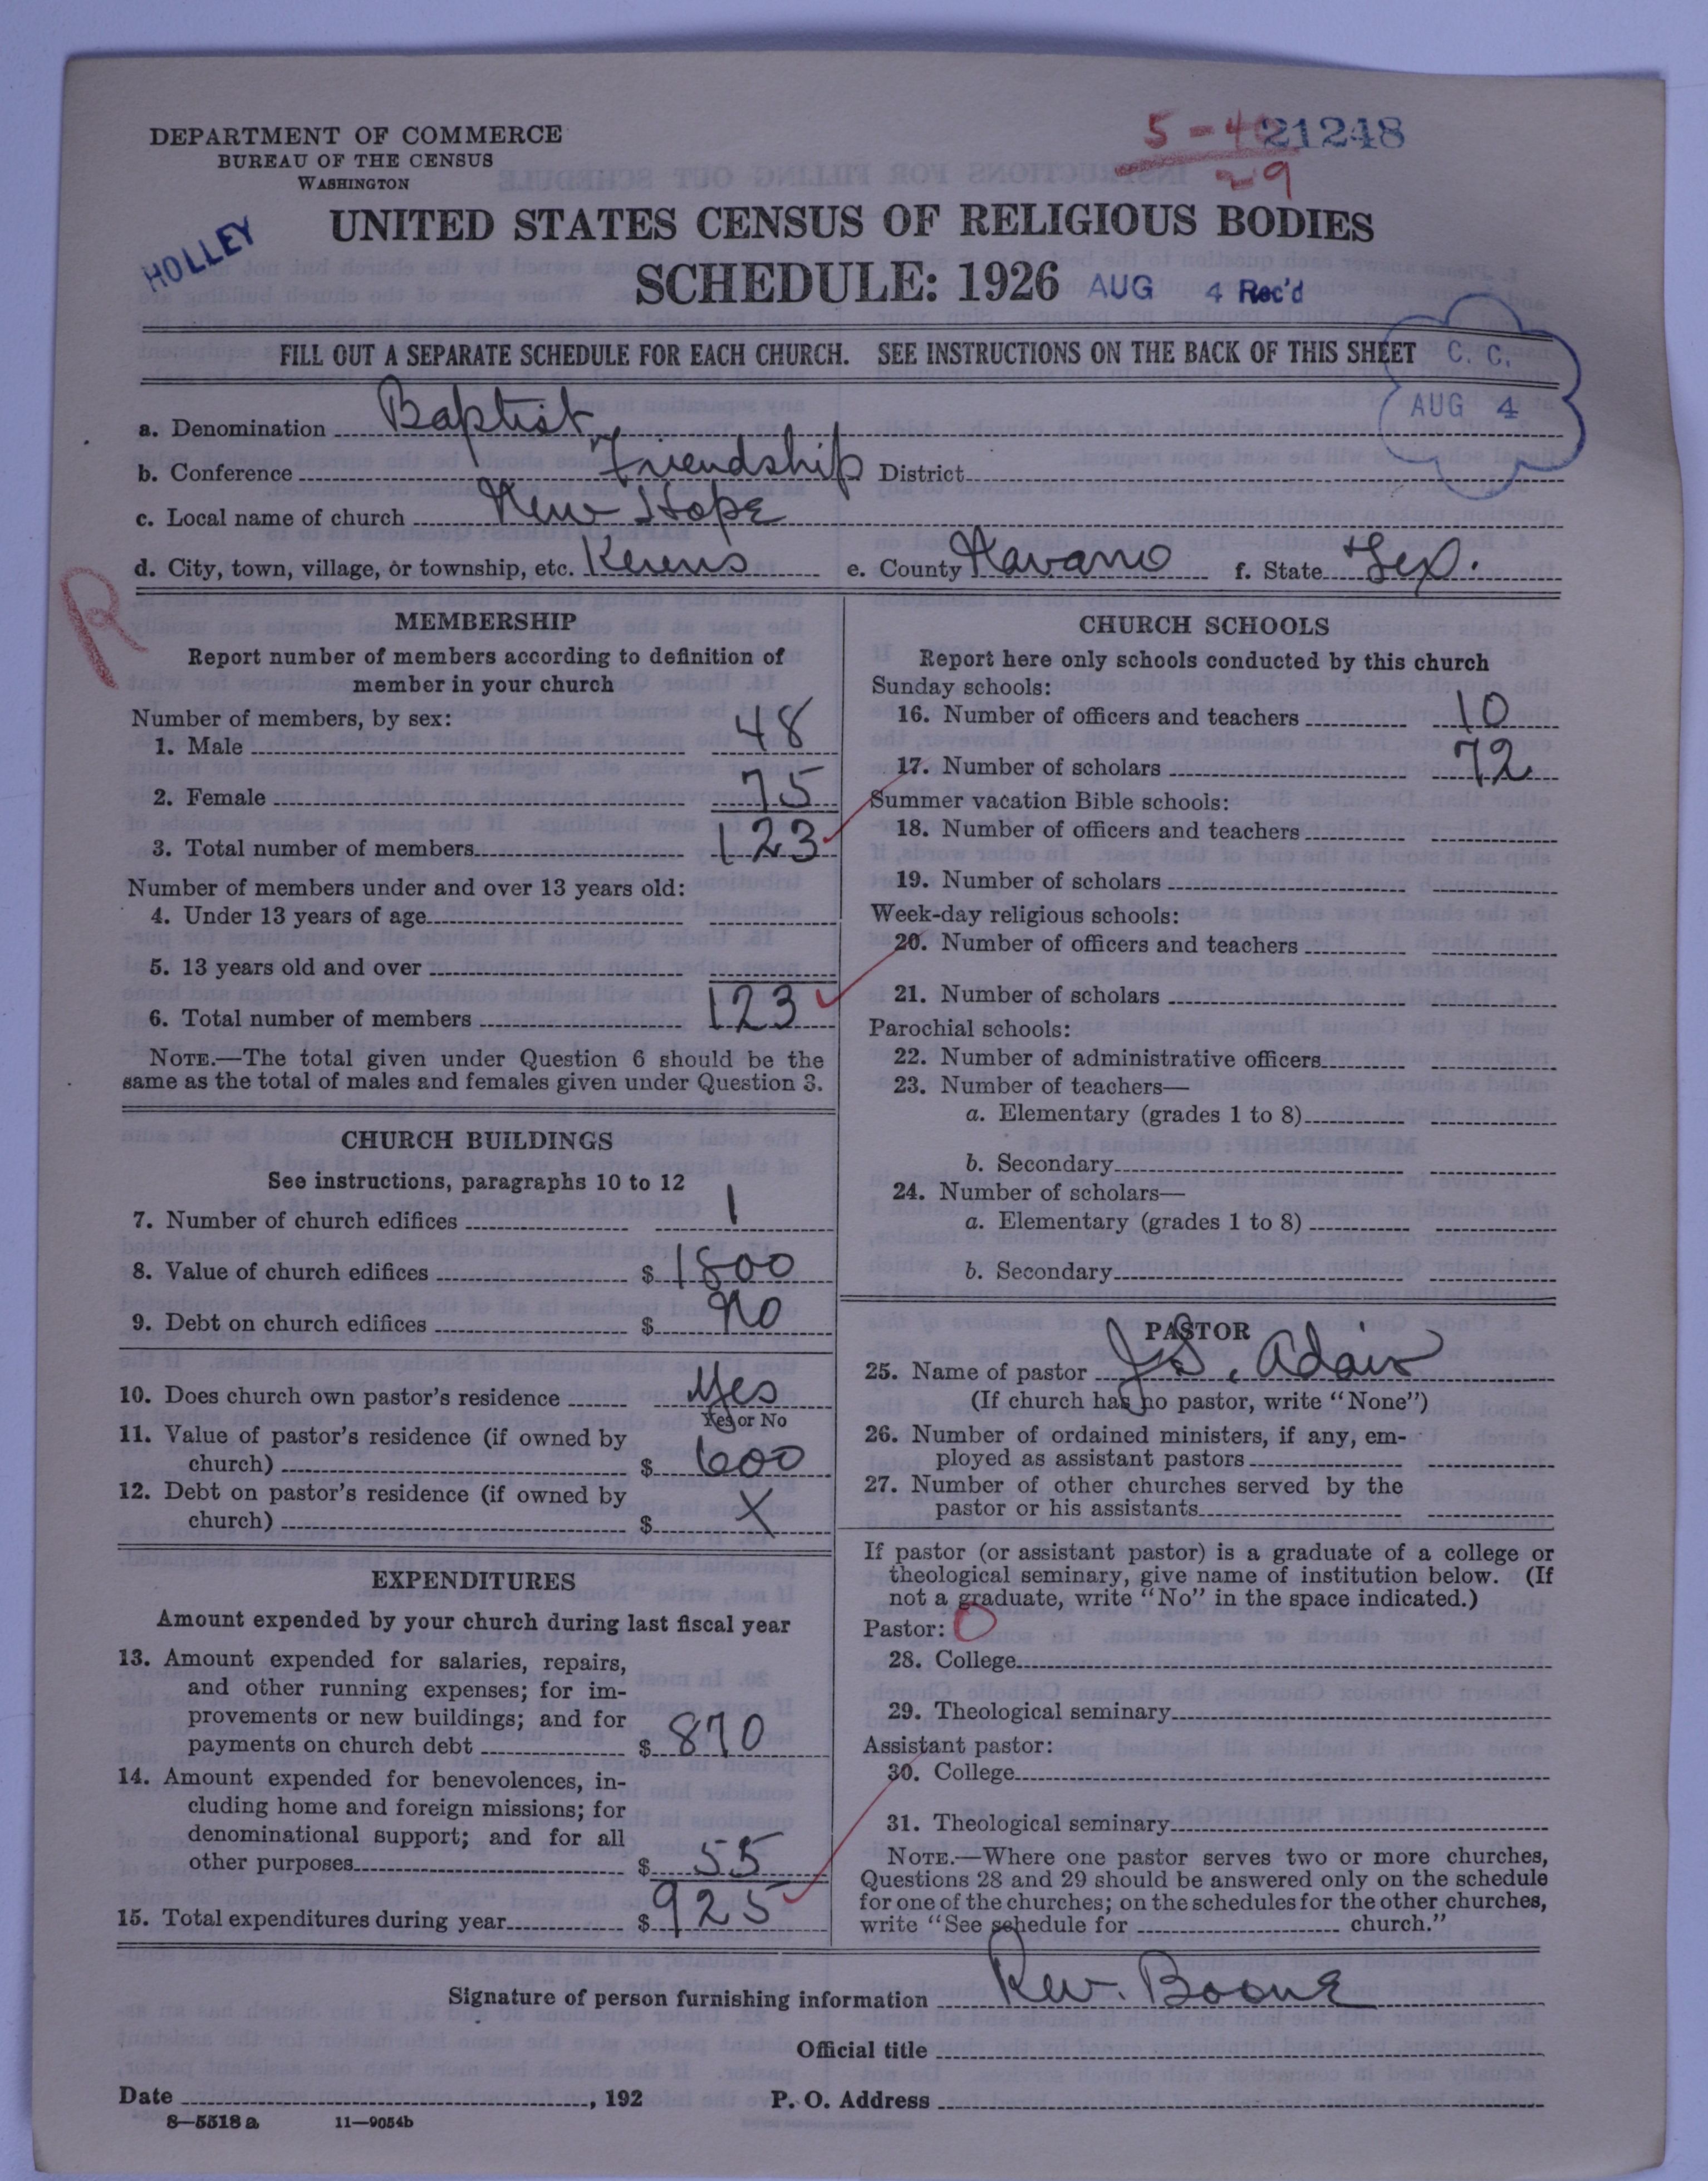 DEPARTMENT OF COMMERCE
BUREAU OF THE CENSUS
WASHINGTON
5-40 21248
29
HOLLEY
UNITED STATES CENSUS OF RELIGIOUS BODIES
SCHEDULE: 1926 AUG 4 Rec'd
FILL OUT A SEPARATE SCHEDULE FOR EACH CHURCH. SEE INSTRUCTIONS ON THE BACK OF THIS SHEET
C. C.
AUG 4
a. Denomination Baptist
b. Conference Friendship District
c. Local name of church New Hope
d. City, town, village, or township, etc. Kerens e. County Navarro f. State Tex.
R
MEMBERSHIP
Report number of members according to definition of
member in your church
Number of members, by sex:
1. Male 48
2. Female 75
3. Total number of members 123
Number of members under and over 13 years old:
4. Under 13 years of age
5. 13 years old and over
6. Total number of members 123
NOTE.—The total given under Question 6 should be the
same as the total of males and females given under Question 3.
CHURCH BUILDINGS
See instructions, paragraphs 10 to 12
7. Number of church edifices 1
8. Value of church edifices $ 1800
9. Debt on church edifices $ no
10. Does church own pastor's residence yes
Yes or No
11. Value of pastor's residence (if owned by
church) $ 600
12. Debt on pastor's residence (if owned by
church) $ X
EXPENDITURES
Amount expended by your church during last fiscal year
13. Amount expended for salaries, repairs,
and other running expenses; for im-
provements or new buildings; and for
payments on church debt $ 870
14. Amount expended for benevolences, in-
cluding home and foreign missions; for
denominational support; and for all
other purposes $ 55
15. Total expenditures during year $ 925
CHURCH SCHOOLS
Report here only schools conducted by this church
Sunday schools:
16. Number of officers and teachers 10
17. Number of scholars 72
Summer vacation Bible schools:
18. Number of officers and teachers
19. Number of scholars
Week-day religious schools:
20. Number of officers and teachers
21. Number of scholars
Parochial schools:
22. Number of administrative officers
23. Number of teachers—
a. Elementary (grades 1 to 8)
b. Secondary
24. Number of scholars—
a. Elementary (grades 1 to 8)
b. Secondary
PASTOR
25. Name of pastor J. S. Adair
(If church has no pastor, write "None")
26. Number of ordained ministers, if any, em-
ployed as assistant pastors
27. Number of other churches served by the
pastor or his assistants
If pastor (or assistant pastor) is a graduate of a college or
theological seminary, give name of institution below. (If
not a graduate, write "No" in the space indicated.)
Pastor: 0
28. College
29. Theological seminary
Assistant pastor:
30. College
31. Theological seminary
NOTE.—Where one pastor serves two or more churches,
Questions 28 and 29 should be answered only on the schedule
for one of the churches; on the schedules for the other churches,
write "See schedule for church."
Signature of person furnishing information Rev. Boone
Official title
Date , 192 P. O. Address
8—5518 a 11—9054b